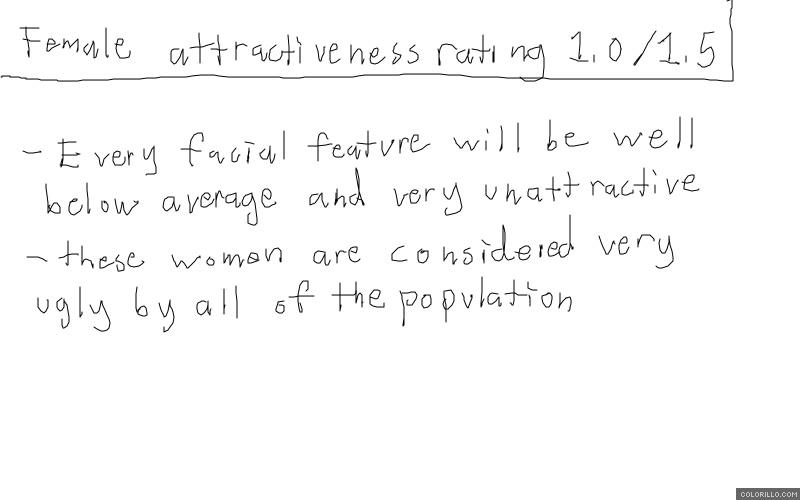 Female attractiveness rating 1.0/1.5
- Every facial feature will be well
below average and very unattractive
- these women are considered very
ugly by all of the population
COLORILLO.COM